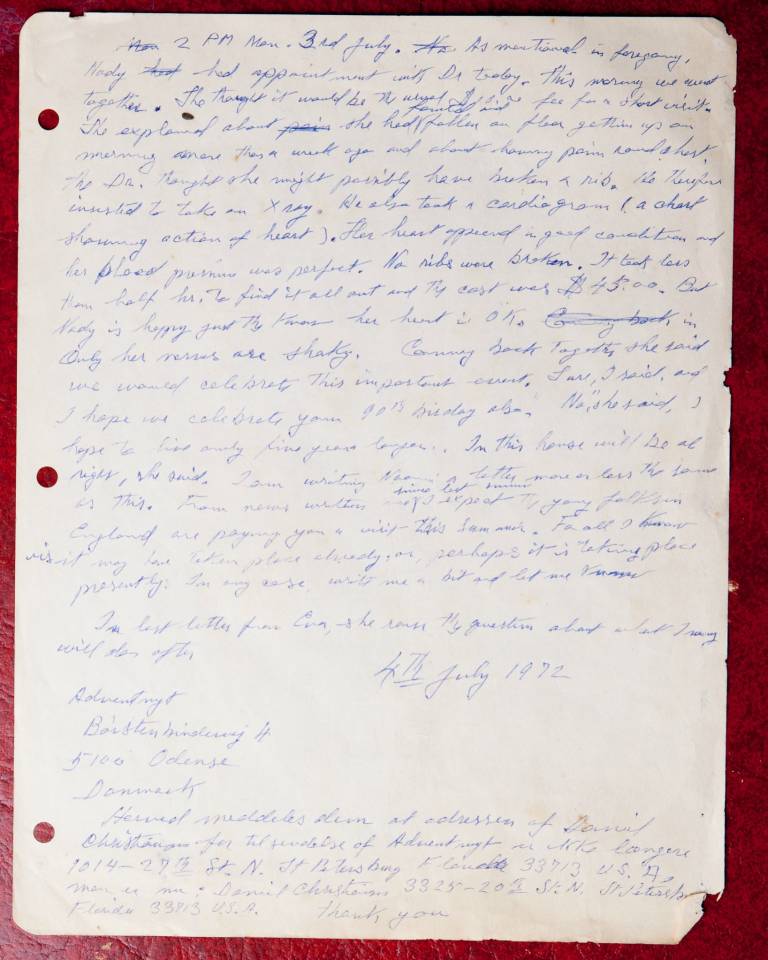 2 PM Mon. 3rd July. As mentioned in foregoing,
Nady had appointment with Dr today. This morning we went
together. She thought it would be the usual fee for a short visit.
She explained about she had fainted and fallen on floor getting up on
morning more than a week ago and about having pain round chest.
The Dr. thought she might possibly have broken a rib. He therefore
insisted to take an X ray. He also took a cardiogram (a chart
showing action of heart). Her heart appeared in good condition and
her blood pressure was perfect. No ribs were broken. It took less
than half hr. to find it all out and the cost was $45.00. But
Nady is happy just to know her heart is OK.
Only her nerves are shaky. Coming back together she said
we would celebrate this important event. Sure, I said, and
I hope we celebrate your 90th birday also. "No," she said, I
hope to live only five years longer. In this house will be al
right, she said. I am writing a letter more or less the same
as this. From news written since last I expect the young folks in
England are paying you a visit this summer. For all I know
it may have taken place already, or, perhaps it is taking place
presently. In any case write me a bit and let me know
In last letter from Eva, she raise the question about what I
will do after
4th July 1972
Adventnyt
Börstenbindervej 4
5100 Odense
Danmark
Herved meddeles dem at adressen af Daniel
Christiansen for tilsendelse af Adventnyt er ikke længere
1014-27th St. N. St Petersburg Florida 33713 U.S.A.
men er nu: Daniel Christiansen 3325-20th St. N. St Petersb
Florida 33713 U.S.A. Thank you